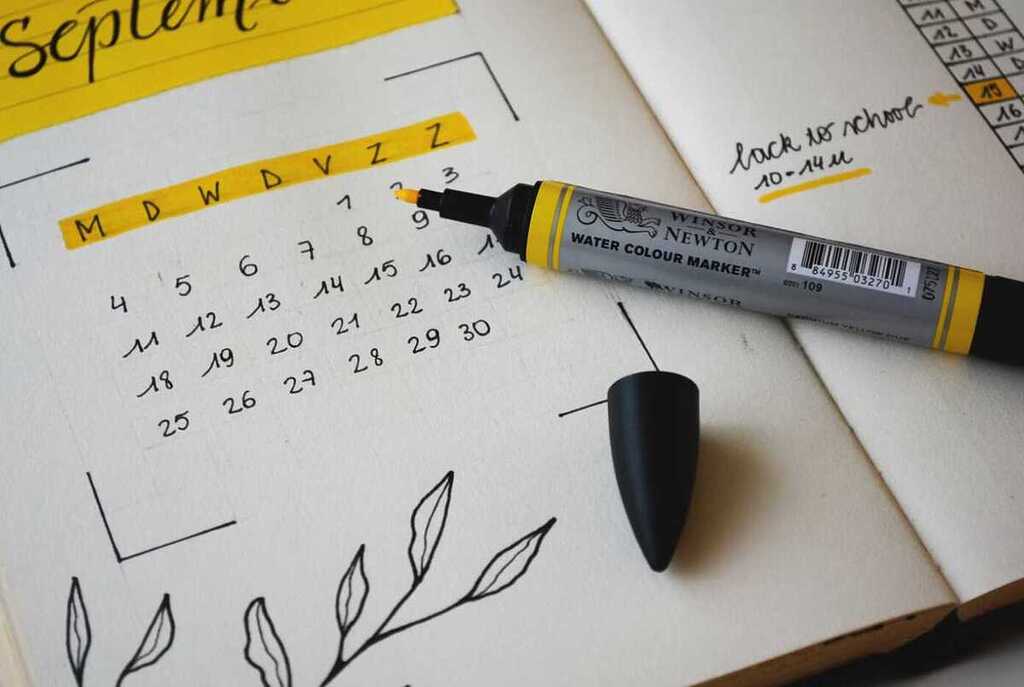 Septem
M D W D V Z Z
1 2 3
4 5 6 7 8 9
11 12 13 14 15 16
18 19 20 21 22 23 24
25 26 27 28 29 30
WINSOR
&
NEWTON
WATER COLOUR MARKER™
WINSOR
8 84955 03270 1
109
075(2)
back to school
10-14u
11 M
12 D
13 W
14 D
15
16